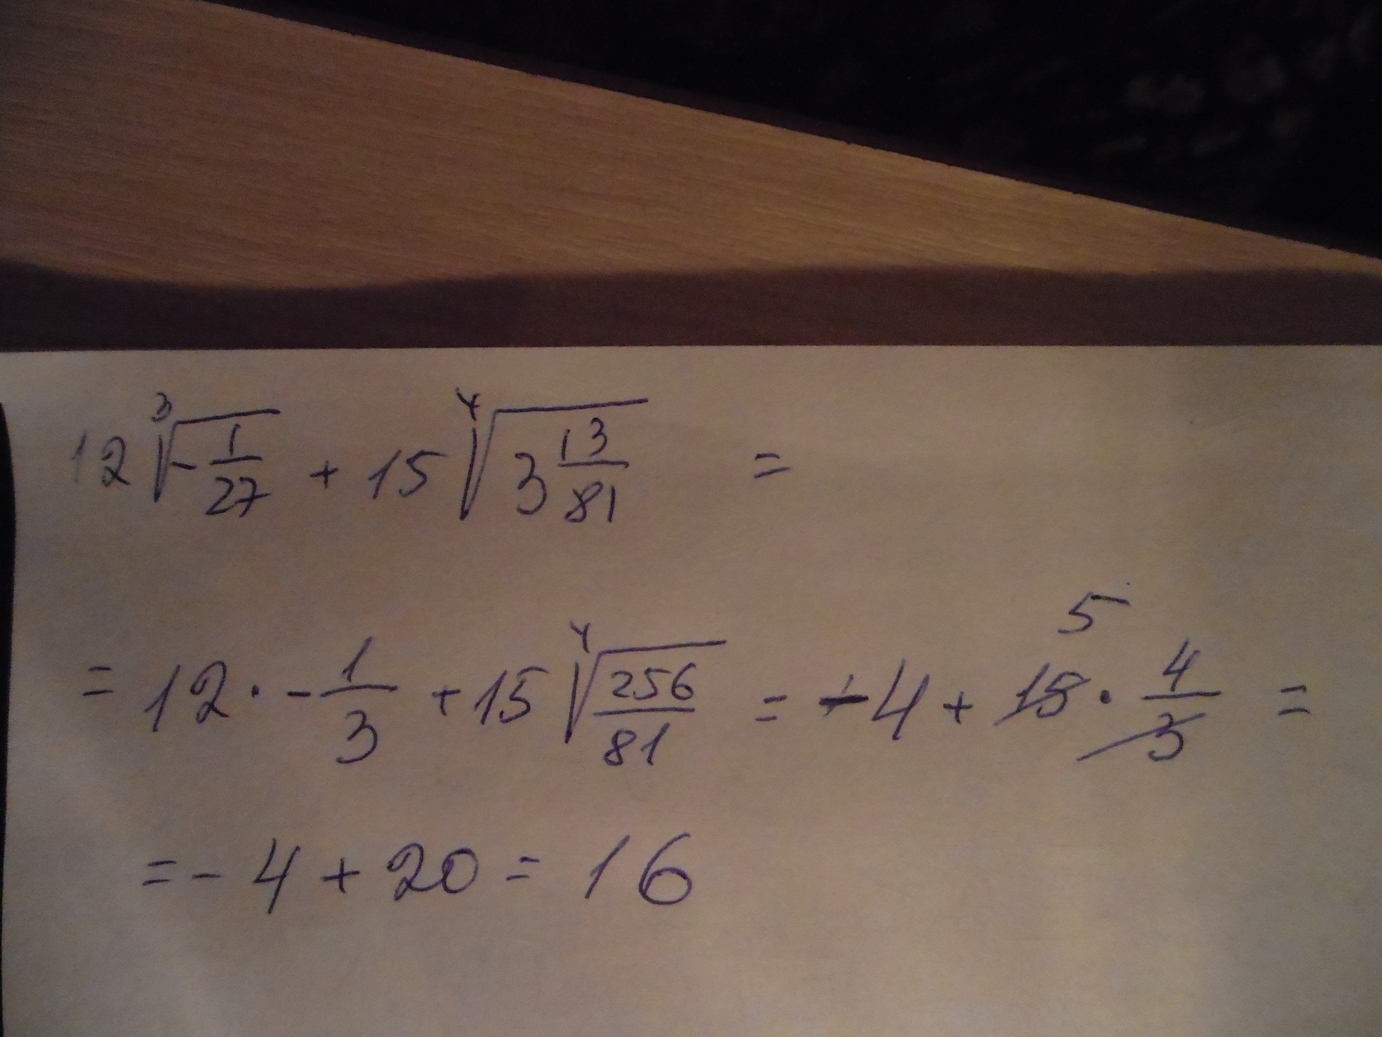 12 ∛(-1/27) + 15 ∜(3 13/81) =
= 12 · - 1/3 + 15 ∜(256/81) = -4 + 15 · 4/3 =
5
= - 4 + 20 = 16